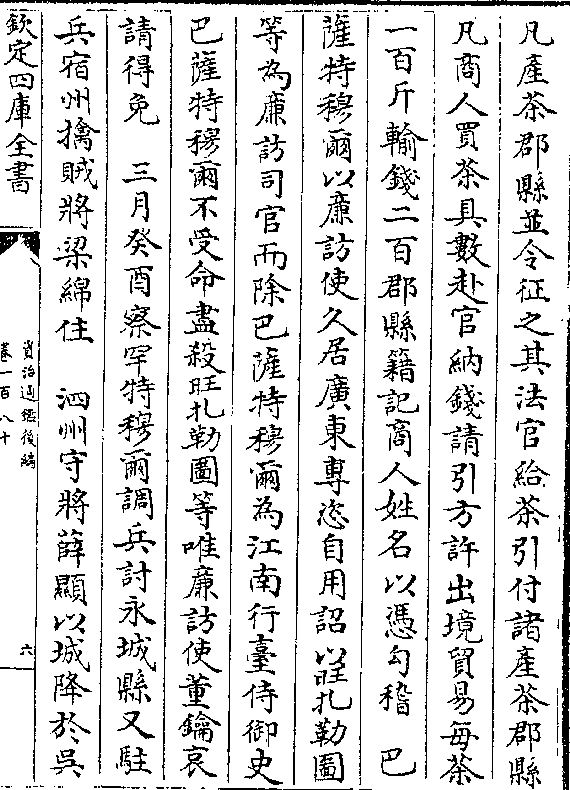 凡產茶郡縣並令征之其法官給茶引付諸產茶郡縣
凡商人買茶具數赴官納錢請引方許出境貿易每茶
一百斤輸錢二百郡縣籍記商人姓名以憑勾稽　巴
薩特穆爾以廉訪使久居廣東專恣自用詔以旺扎勒圖
等為廉訪司官而除巴薩特穆爾為江南行臺侍御史
巴薩特穆爾不受命盡殺旺扎勒圖等唯廉訪使董鑰哀
請得免　三月癸酉察罕特穆爾調兵討永城縣又駐
兵宿州擒賊將梁綿住　泗州守將薛顯以城降於吳
欽定四庫全書
資治通鑑後編
卷一百八十
六